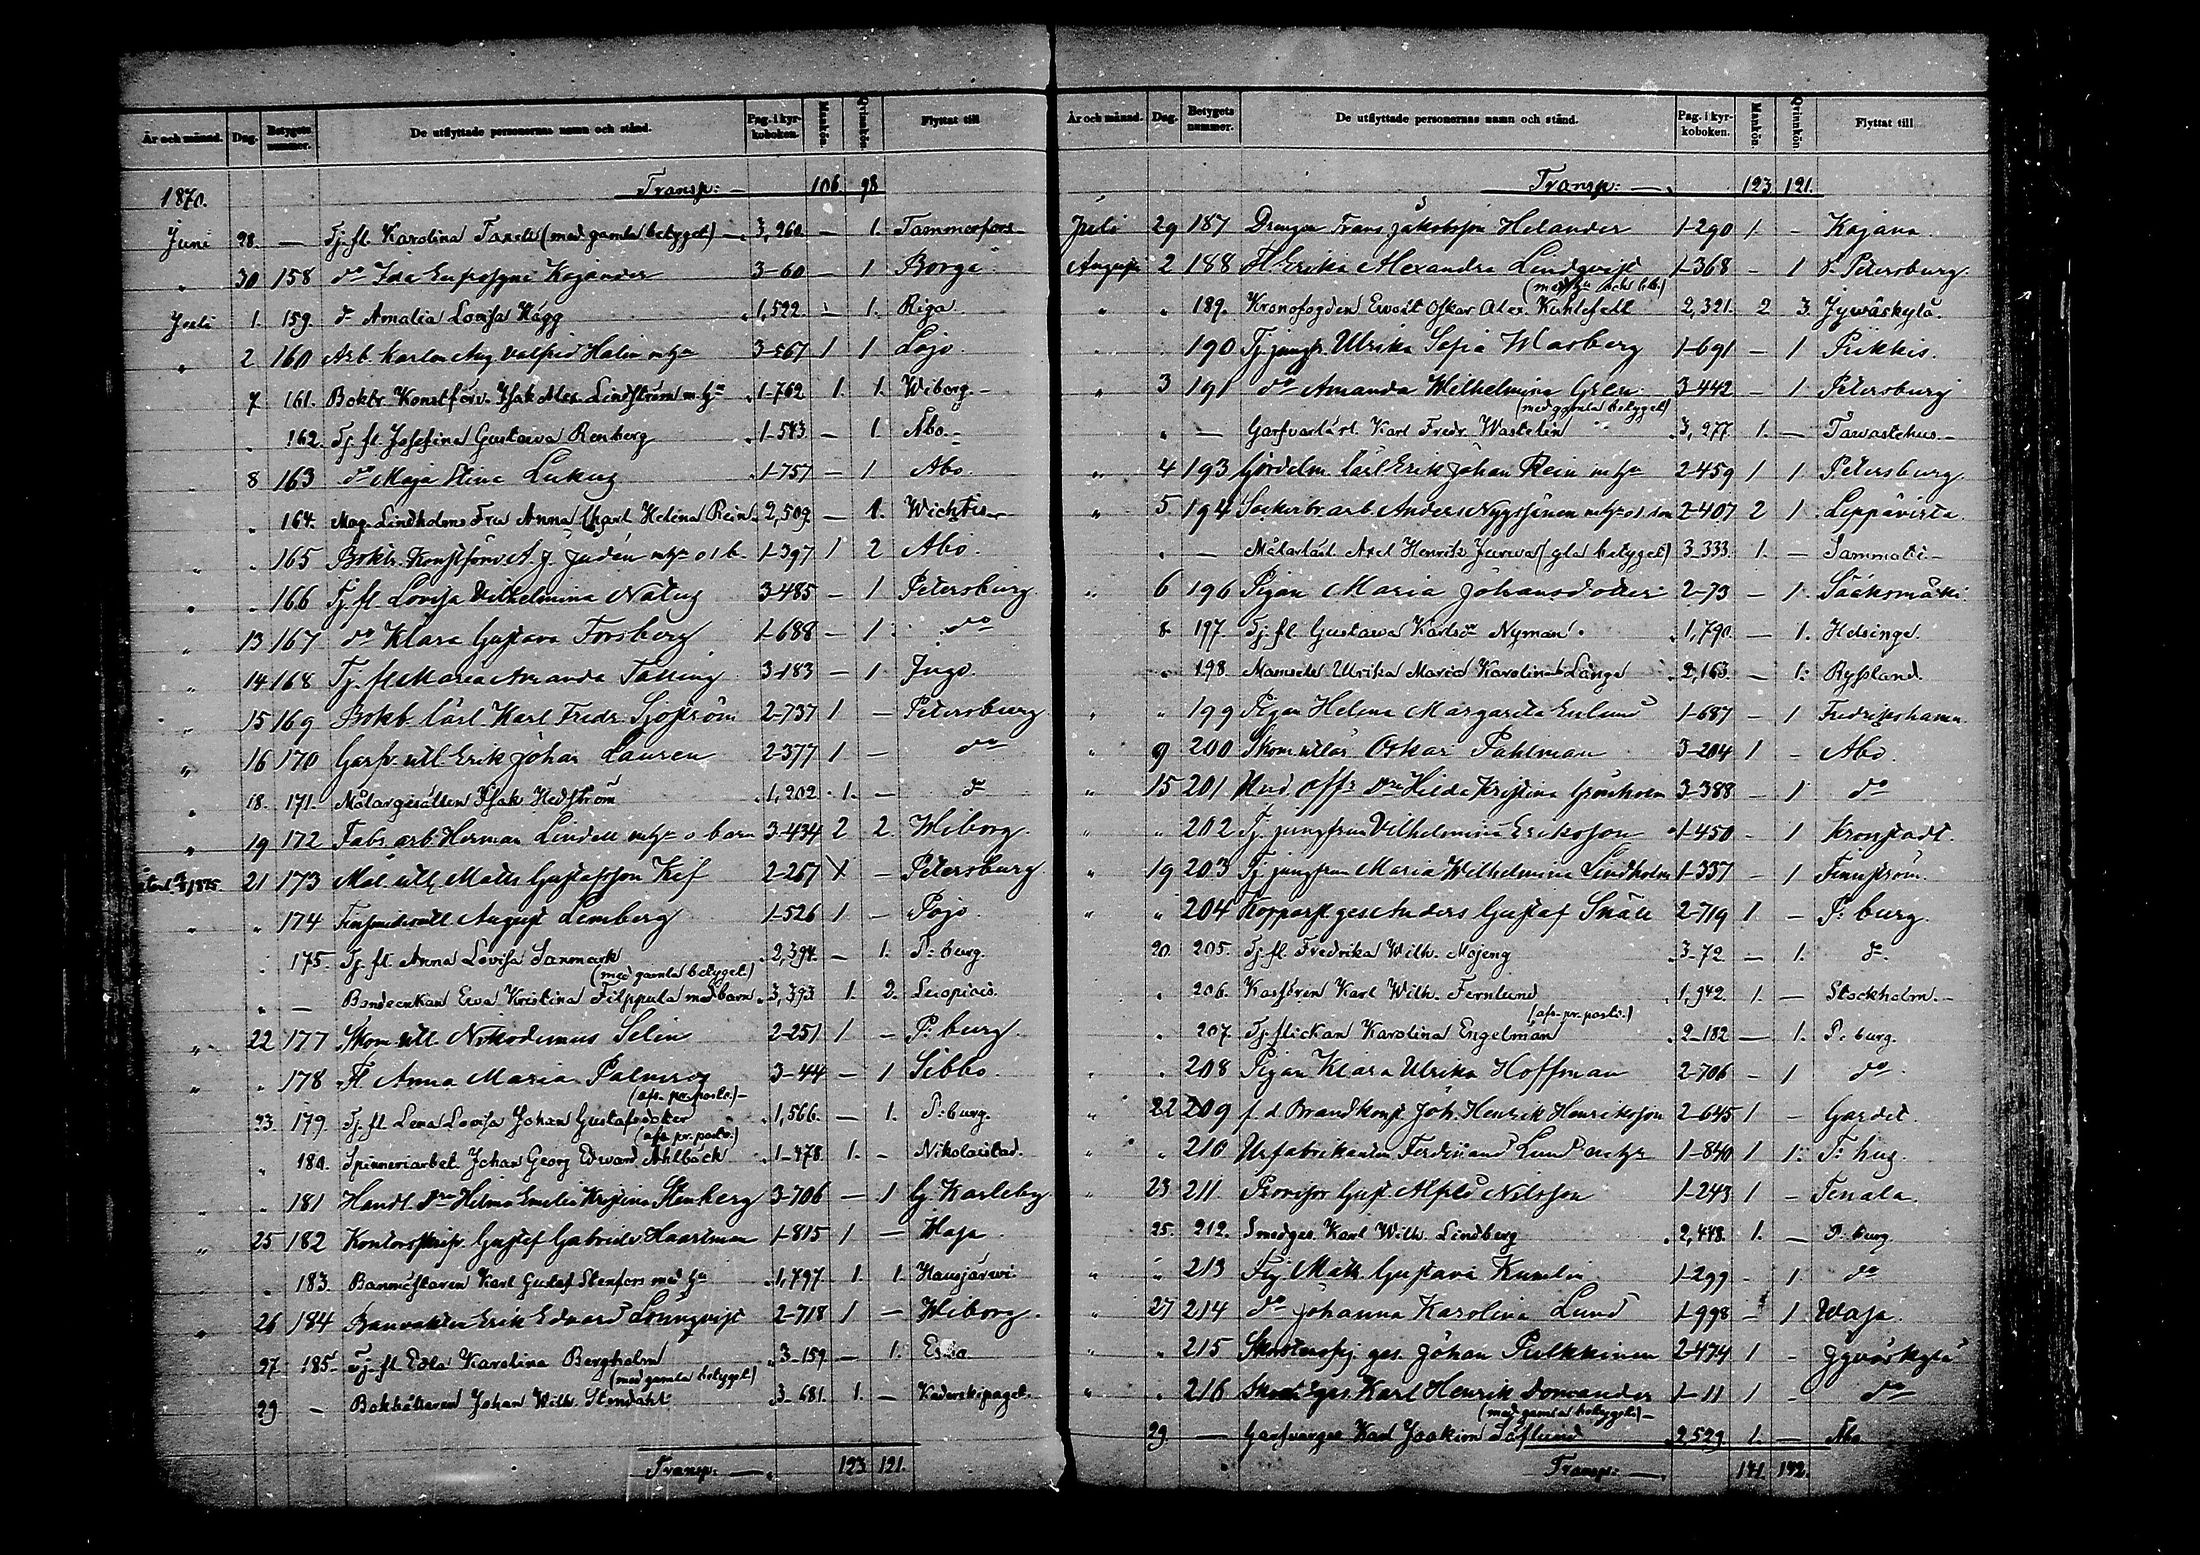 År och månad. Dag. Betygets nummer. De utflyttade personernas namn och stånd. Pag. i kyrkoboken. Mankön. Qvinnkön. Flyttat till
1870. Transp: — 106. 98
Juni 28. — Tj. fl. Karolina Taxell (med gamla betyget) — 3,260. — 1. Tammerfors
" 30 158 do Ida Eufrosyne Kajander 3-60 — 1 Borgå
Juli 1. 159. d Amalia Lovisa Hägg 1,522. — 1. Riga.
" 2 160 Arb. karlen Aug. Valfrid Halin m. hu 3-567 1 1 Lojo
7 161. Boktr. Konstförv. Isak Alex. Lindström m. hu 1-762 1. 1. Wiborg. —
162. Tj. fl. Josefina Gustava Renberg 1-543 — 1. Åbo. —
8 163 do Maja Stina Lukus 1-757 — 1 Åbo.
164. Mag. Lindholms Fru Anna Charl. Helena Rein 2,509. — 1. Wichtis
" 165 Boktr. Konstförv. A. J. Judén m. hu o 1 b. 1-397 1 2 Åbo.
" 166 Tj. fl. Lovisa Vilhelmina Natus 3-485 — 1 Petersburg
" 13 167 do Klara Gustava Forsberg 1-688 — 1 do
" 14 168 Tj. fl. Maria Amanda Talling 3-183 — 1 Ingo.
" 15 169 Bokb. lärl. Karl Fredr. Sjöström 2-737 1 — Petersburg
" 16 170 Garfv. utl. Erik Johan Lauren 2-377 1 — do
18. 171. Målargesällen Isak Hedström 1,202. 1. — d
" 19 172 Fabr. arb. Herman Lindell m. hu o barn 3-434 2 2. Wiborg.
21 173 Mål. utl. Matts Gustafsson Kef 2-267 1 — Petersburg
" 174 August Lemberg 1-526 1 — Pojo
175. Tj. fl. Anna Lovisa Sanmark 2,394. — 1. P:burg.
(med gamla betyget)
— Bondeenkan Ewa Kristina Filppula med barn 3,393 1. 2.
" 22 177 Skom. utl. Nikodemus Selin 2-251 1 — P:burg
" 178 Fl Anna Maria Palmros 3-44 — 1 Sibbo.
(afs. pr. posto.) —
23. 179. Tj. fl. Lena Lovisa Johan Gustafsdoter 1,566. — 1. P:burg.
(afs. pr. posto.)
180. Spinneriarbet. Johan Georg Edward Ahlbäck 1-478. 1. — Nikolaistad.
" 181 Handl. Helma Emelie Kristina Stenberg 3-706 — 1 G. Karleby
" 25 182 Kontorsskrifv. Gustaf Gabriel Haartman 1-815 1 — Wasa
183. Banmästaren Karl Gustaf Stenfors med hu 1,797. 1. 1. Hausjärwi.
" 26 184 Banvakten Erik Edvard Lönnqvist 2-718 1 — Wiborg.
27. 185. Tj. fl. Edla Karolina Bergholm 3-159. — 1.
(med gamla betyget)
29 — Bokhållaren Johan Wilh. Stendahl 3-681. 1. —
Transp: — 123 121.
År och månad. Dag. Betygets nummer. De utflyttade personernas namn och stånd. Pag. i kyrkoboken. Mankön. Qvinnkön Flyttat till
Transp: — 123 121.
Juli 29 187 Drengen Frans Jakobsson Helander 1-290 1 — Kajana
Augusti 2 188 Fl Erika Alexandra Lindqvist 1-368 — 1 S:t Petersburg.
" 189. Kronofogden Ewald Oskar Alex. Kuhlefelt 2,321. 2 3. Jywäskylä.
190 Tj. jungfr. Ulrika Sofia Wasberg 1-691 — 1 Pikkis.
" 3 191 do Amanda Wilhelmina Grén 3-442 — 1 Petersburg
(med gamla betyget)
" — Garfvarlärl. Karl Fredr. Wastelin 3,277 1. — Tawastehus —
" 4 193 Gördelm. lärl. Erik Johan Rein m. hu 2-459 1 1 Petersburg
5 194 Sockerbr. arb. Anders Nyyssönen m. hu o 1 son 2-407 2 1 Leppävirta.
" — Målarlärl. Axel Henrik Jureva (gla betyget) 3-333. 1. — Sammatti —
" 6 196 Pigan Maria Johansdotter 2-73 — 1 Sääksmäki
8. 197. Tj. fl. Gustava Karlsdr Nyman 1,790. — 1. Helsinge.
198. Mamsell Ulrika Maria Karolina Långe 2,163. — 1. Ryssland.
" " 199 Pigan Helena Margareta Enlund 1-687 — 1 Fredrikshamn
" 9 200 Oskar Pahlman 3-204 1 — Åbo.
" 15 201 Hilda Kristina Grönholm 3-388 — 1 do
" " 202 Tj. jungfrun Vilhelmina Eriksson 1-450 — 1 Kronstadt.
" 19 203 Tj. jungfrun Maria Wilhelmina Lindholm 1-337 — 1 Finström.
" " 204 Kopparsl. ges. Anders Gustaf Snäll 2-719 1 — P:burg.
20 205. Tj. fl. Fredrika Wilh. Mojeng 3-72 — 1. d.
206. Kassören Karl Wilh. Fernlund 1,942. 1. — Stockholm. —
(afs. pr. posto.)
207. Tj. flickan Karolina Engelman 2-182 — 1. P:burg.
208 Pigan Klara Ulrika Hoffman 2-706 — 1 do
" 22 209 f. d. Brandkonst. Joh. Henrik Henriksson 2-645 1 — Gardet
" 210 Urfabrikanten Ferdinand Lund m. hu 1-840 1 1.
" 23 211. Provisor Gust. Alfred Nilsson 1-243 1 — Tenala.
25. 212. Smedges. Karl Wilh. Lindberg 2,448. 1. — P:burg
" " 213 Math. Gustava Kumlin 1-299 — 1 do
" 27 214 do Johanna Karolina Lund 1-998 — 1 Wasa.
" 215 ges. Johan Pulkkinen 2-474 1 — Jyväskylä
" 216 ges. Karl Henrik Domander 1-11 1 — do
(med gamla betyget) —
29 — Garfvarges. Karl Joakim Säflund 2,529 1. — Åbo
Transp: — 141. 142.